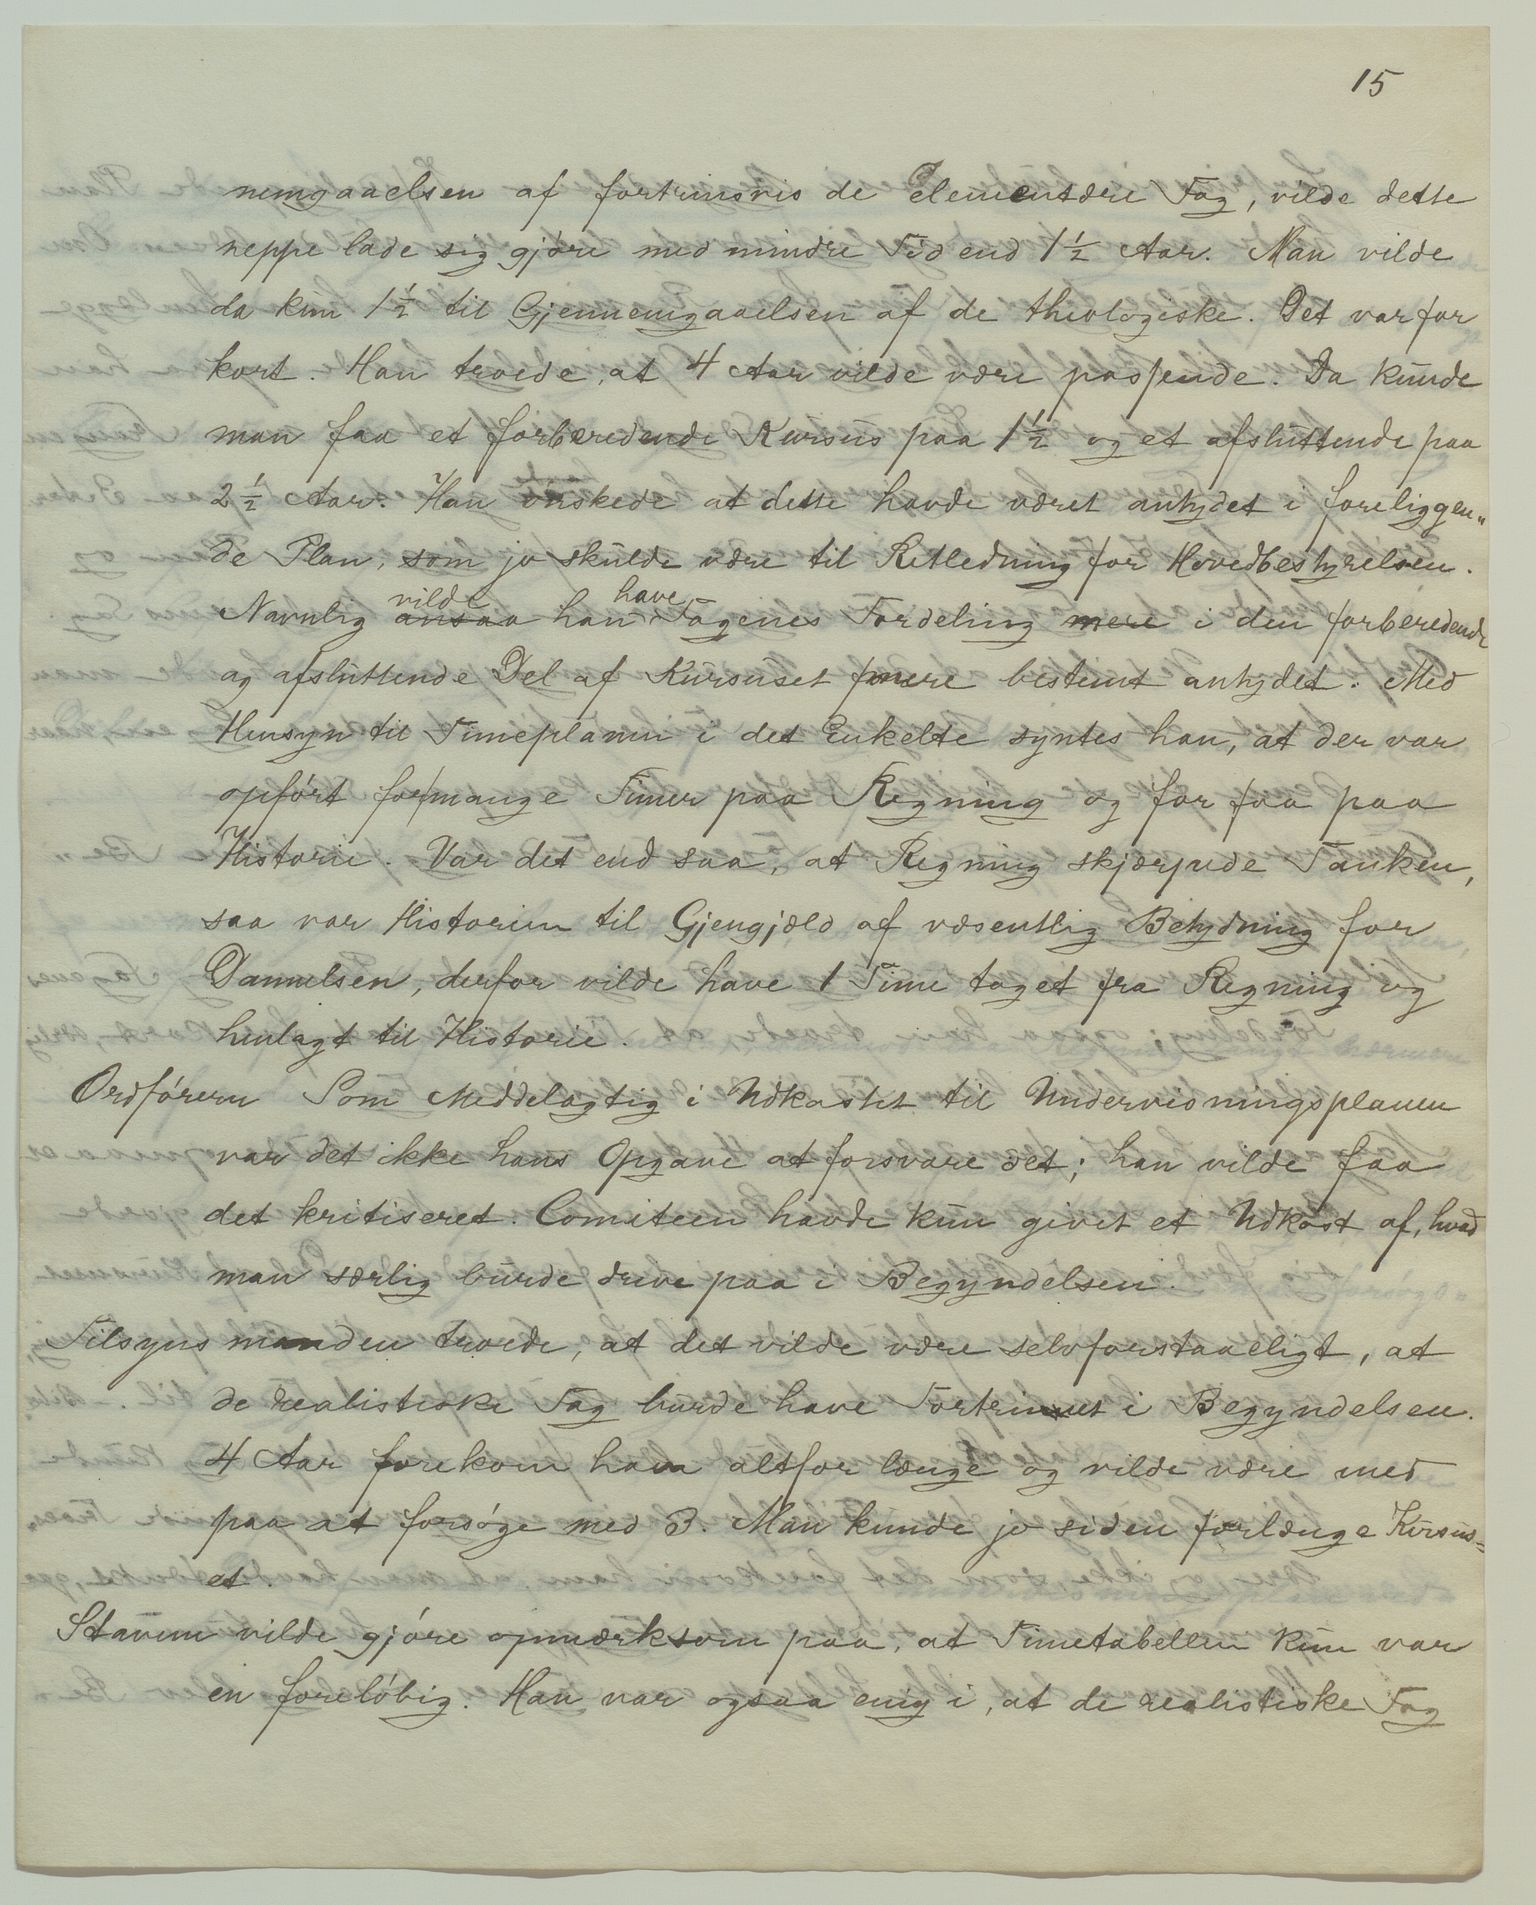 15
nemgaaelsen af fortrinsvis de Elementære Fag, vilde dette
neppe lade sig gjøre med mindre Tid end 1 1/2 Aar. Man vilde
da kun 1 1/2 til Gjennemgaaelsen af de theologiske. Det var for
kort. Han troede, at 4 Aar vilde være passende. Da kunde
man faa et forberedende Kursus paa 1 1/2 og et afsluttende paa
2 1/2 Aar. Han ønskede at dette havde været antydet i foreliggen„
de Plan, som jo skulde være til Retledning for Hovedbestyrelsen.
Navnlig ansaa vilde han have Fagenes Fordeling mere i den forberedende
og afsluttende Del af Kursuset mere bestemt antydet. Med
Hensyn til Timeplanen i det Enkelte syntes han, at der var
opført for mange Timer paa Regning og for faa paa
Historie. Var det end saa, at Regning skjærpede Tanken,
saa var Historien til Gjengjæld af væsentlig Betydning for
Dannelsen, derfor vilde have 1 Time taget fra Regning og
henlagt til Historie.
Ordføreren Som Meddelagtig i Udkastet til Undervisningsplanen
var det ikke hans Opgave at forsvare det; han vilde faa
det kritiseret. Comiteen havde kun givet et Udkast af, hvad
man særlig burde drive paa i Begyndelsen.
Tilsynsmanden troede, at det vilde være selvforstaaeligt, at
de realistiske Fag burde have Fortrinet i Begyndelsen.
4 Aar forekom ham altfor længe og vilde være med
paa at forsøge med 3. Man kunde jo siden forlænge Kursus=
et.
Stavem vilde gjøre opmærksom paa, at Timetabellen kun var
en foreløbig. Han var ogsaa enig i, at de realistiske Fag